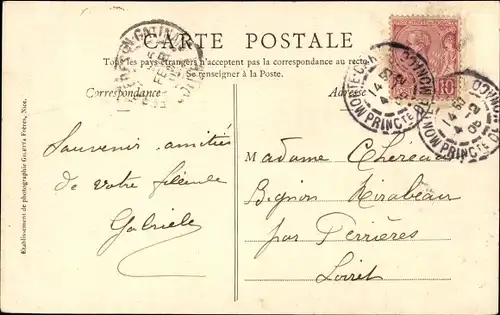 CARTE POSTALE
Tous les pays étrangers n'acceptent pas la correspondance au recto
Se renseigner à la Poste.
Correspondance
Adresse
Souvenir amitiés
de votre filleule
Gabriele
Madame Chéreau
Bignon Mirabeau
par Ferrières
Loiret
10
MONTE-CARLO
14
PRINCTE DE MONACO
Etablissement de photographie Giletta Frères, Nice.